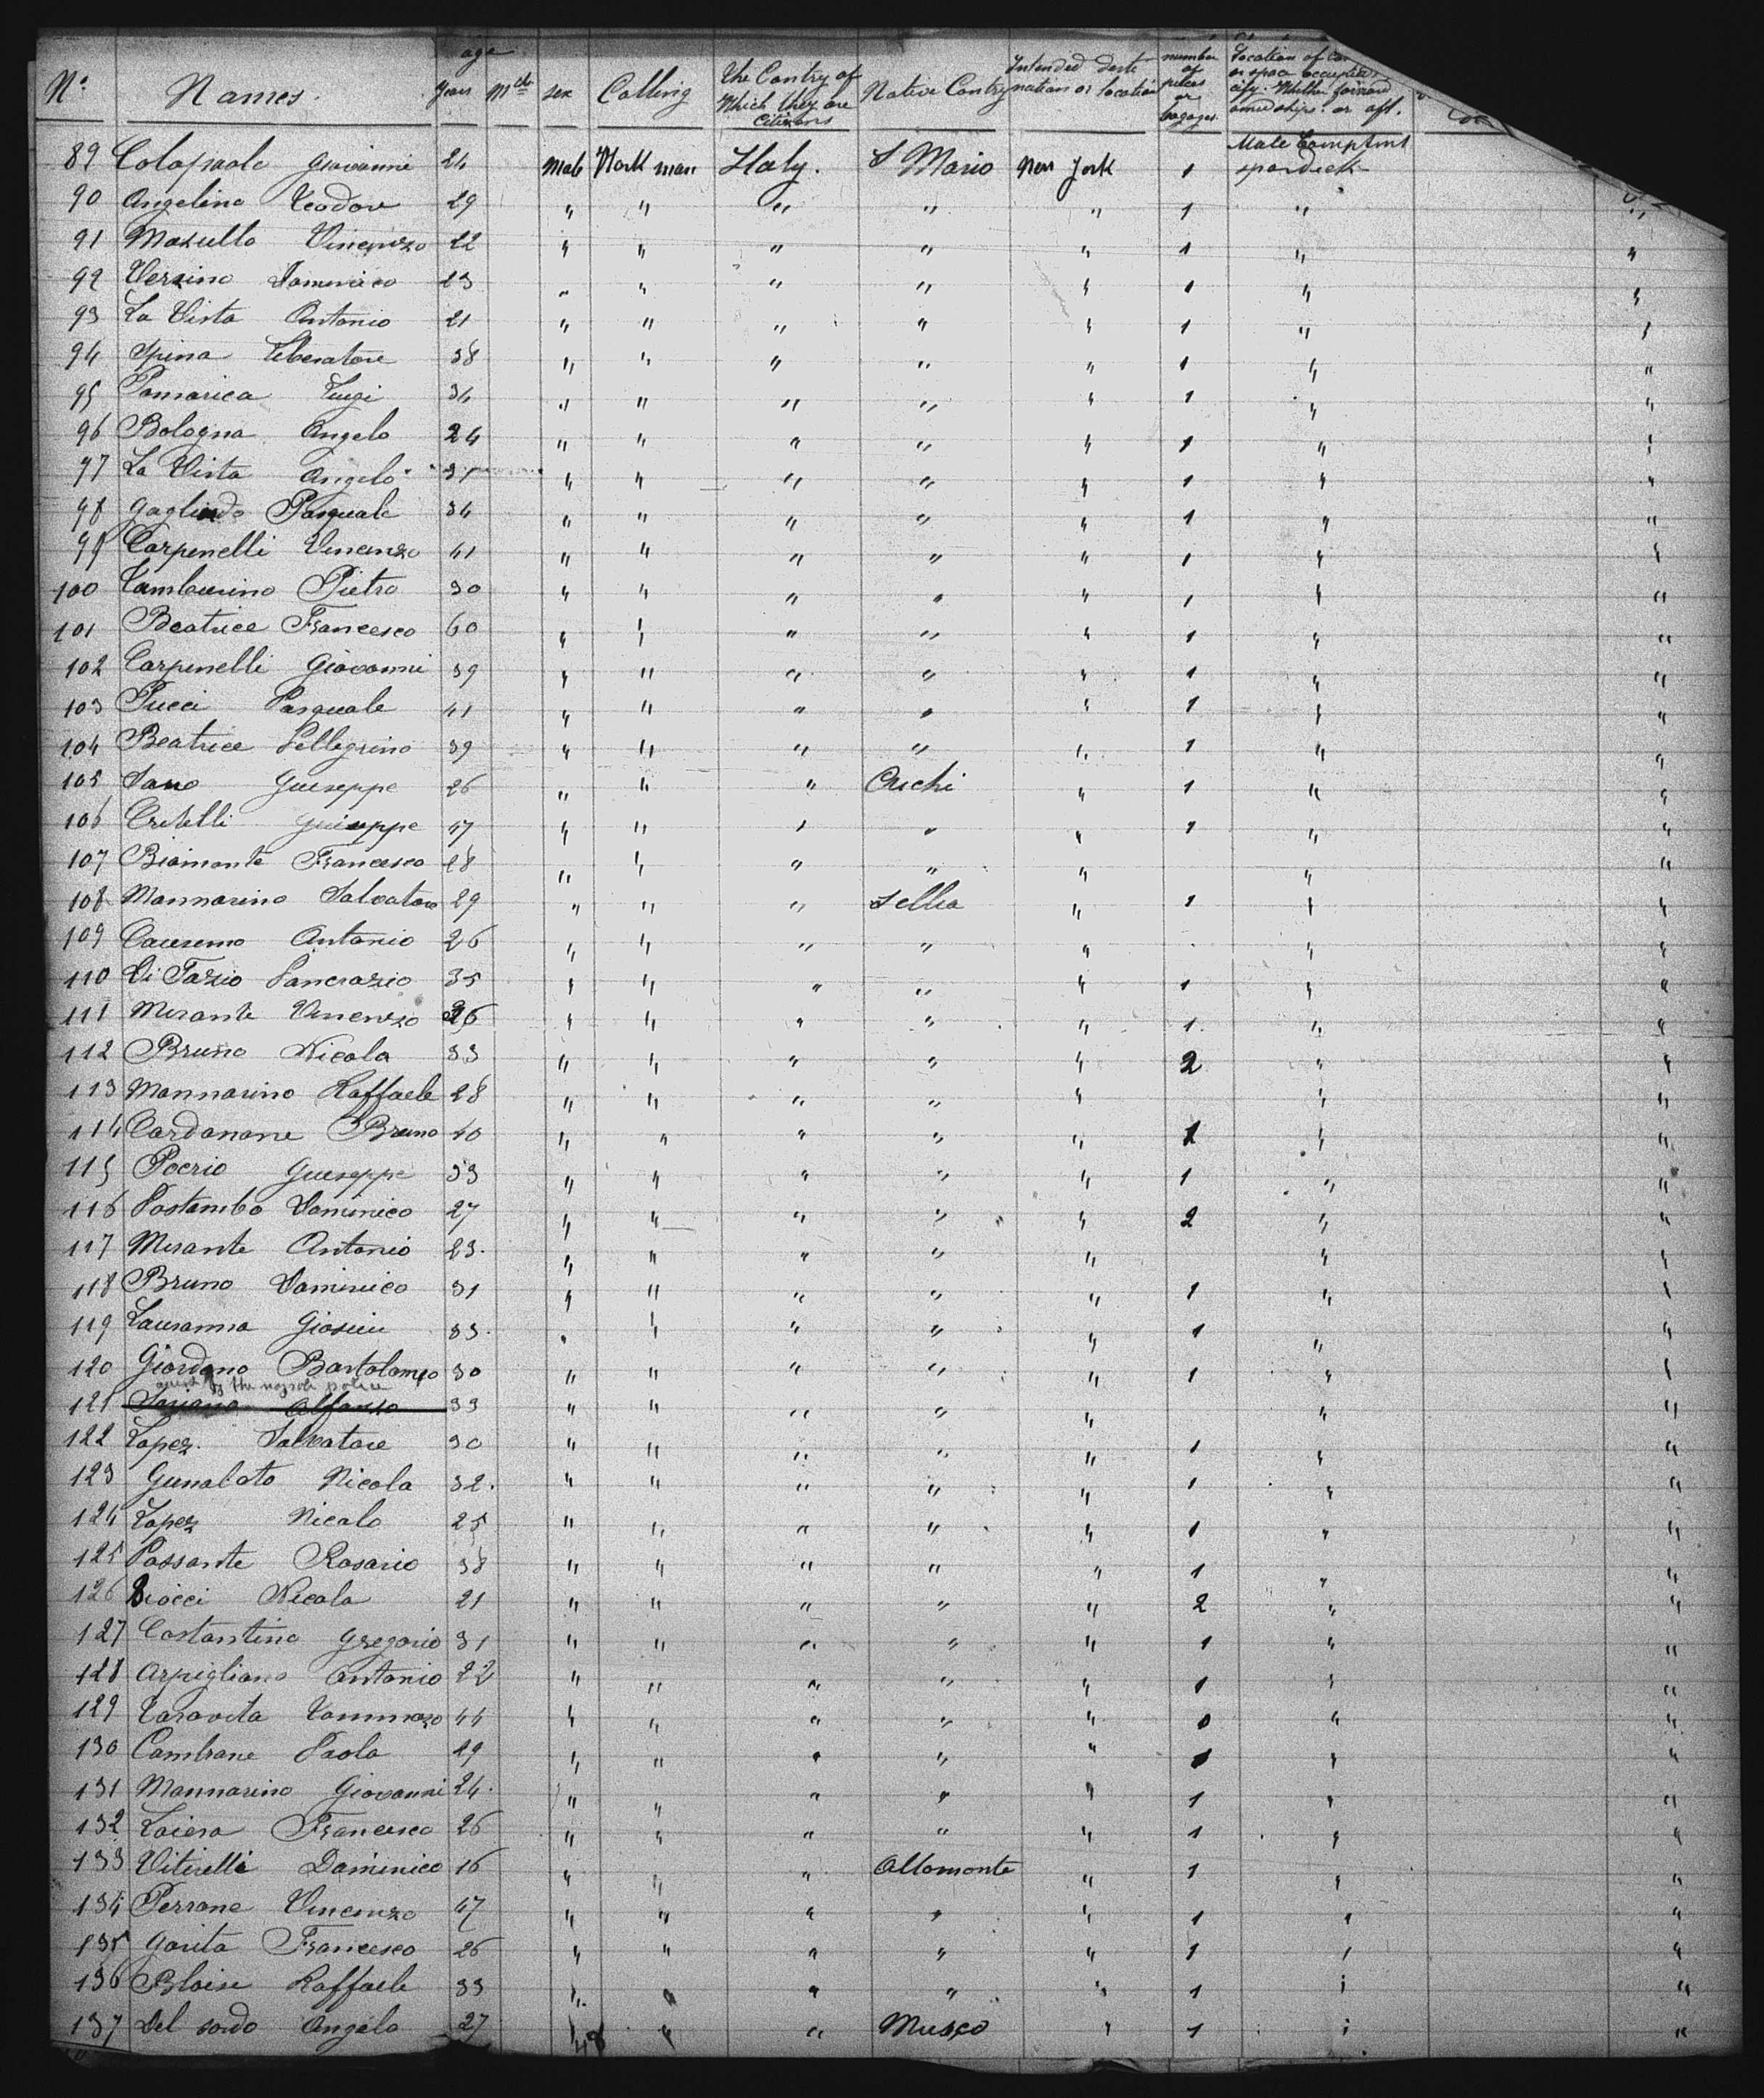 N° Names. age Years Mths sex Calling The Contry of Which they are Citizens Native Contry Intended desti nation or location number of pieces or bagages. Location of or space occupied
89 Colapaolo Giovanni 24 Male Work man Italy. S Mario New York 1 Male Comptmt spardeck
90 Angelino Teodore 29 " " " " " 1 " "
91 Masullo Vincenzo 22 " " " " " 1 " "
92 Versino Dominico 23 " " " " " 1 " "
93 La Vista Antonio 21 " " " " " 1 " "
94 Spina Liberatore 38 " " " " " 1 " "
95 Pomarica Luigi 34 " " " " " 1 " "
96 Bologna Angelo 24 " " " " " 1 " "
97 La Vista Angelo 31 " " " " " 1 " "
98 Gagliardo Pasquale 34 " " " " " 1 " "
99 Carpenelli Vincenzo 41 " " " " " 1 " "
100 Tamburino Pietro 30 " " " " " 1 " "
101 Beatrice Francesco 60 " " " " " 1 " "
102 Carpenelli Giovanni 39 " " " " " 1 " "
103 Pucci Pasquale 41 " " " " " 1 " "
104 Beatrice Pellegrino 39 " " " " " 1 " "
105 Sano Giuseppe 26 " " " Cuchi " 1 " "
106 Critelli Giuseppe 47 " " " " " 1 " "
107 Biamonte Francesco 28 " " " " " " "
108 Mannarino Salvatore 29 " " " Sellia " 1 " "
109 Antonio 26 " " " " " " "
110 Di Fazio Pancrazio 35 " " " " " 1 " "
111 Merante Vincenzo 26 " " " " " 1 " "
112 Bruno Nicola 33 " " " " " 2 " "
113 Mannarino Raffaele 28 " " " " " " "
114 Cardamone Bruno 40 " " " " " 1 " "
115 Poerio Giuseppe 33 " " " " " 1 " "
116 Postambo Dominico 27 " " " " " 2 " "
117 Merante Antonio 23. " " " " " " "
118 Bruno Dominico 31 " " " " " 1 " "
119 Lausanna 33. " " " " " 1 " "
120 Giordano Bartolomeo 30 " " " " " 1 " "
by the naple police
121 Soriano Alfonso 33 " " " " " " "
122 Lopez. Salvatore 30 " " " " " 1 " "
123 Gumaloto Nicola 32. " " " " " 1 " "
124 Lopez Nicolo 25 " " " " " 1 " "
125 Passante Rosario 38 " " " " " 1 " "
126 Nicola 21 " " " " " 2 " "
127 Costantino Gregorio 31 " " " " " 1 " "
128 Arpigliano Antonio 22 " " " " " 1 " "
129 Taravita Tommaso 44 " " " " " 0 " "
130 Cambrane Paolo 29 " " " " " 1 " "
131 Mannarino Giovanni 24. " " " " " 1 " "
132 Loiero Francesco 26 " " " " " 1 " "
133 Vitirelli Dominico 16 " " " Altomonte " 1 " "
134 Perrone Vincenzo 47 " " " " " 1 " "
135 Gorita Francesco 26 " " " " " 1 " "
136 Bloise Raffaele 33 " " " " " 1 " "
137 Del sordo Angelo 27 " " " Musco " 1 " "
48